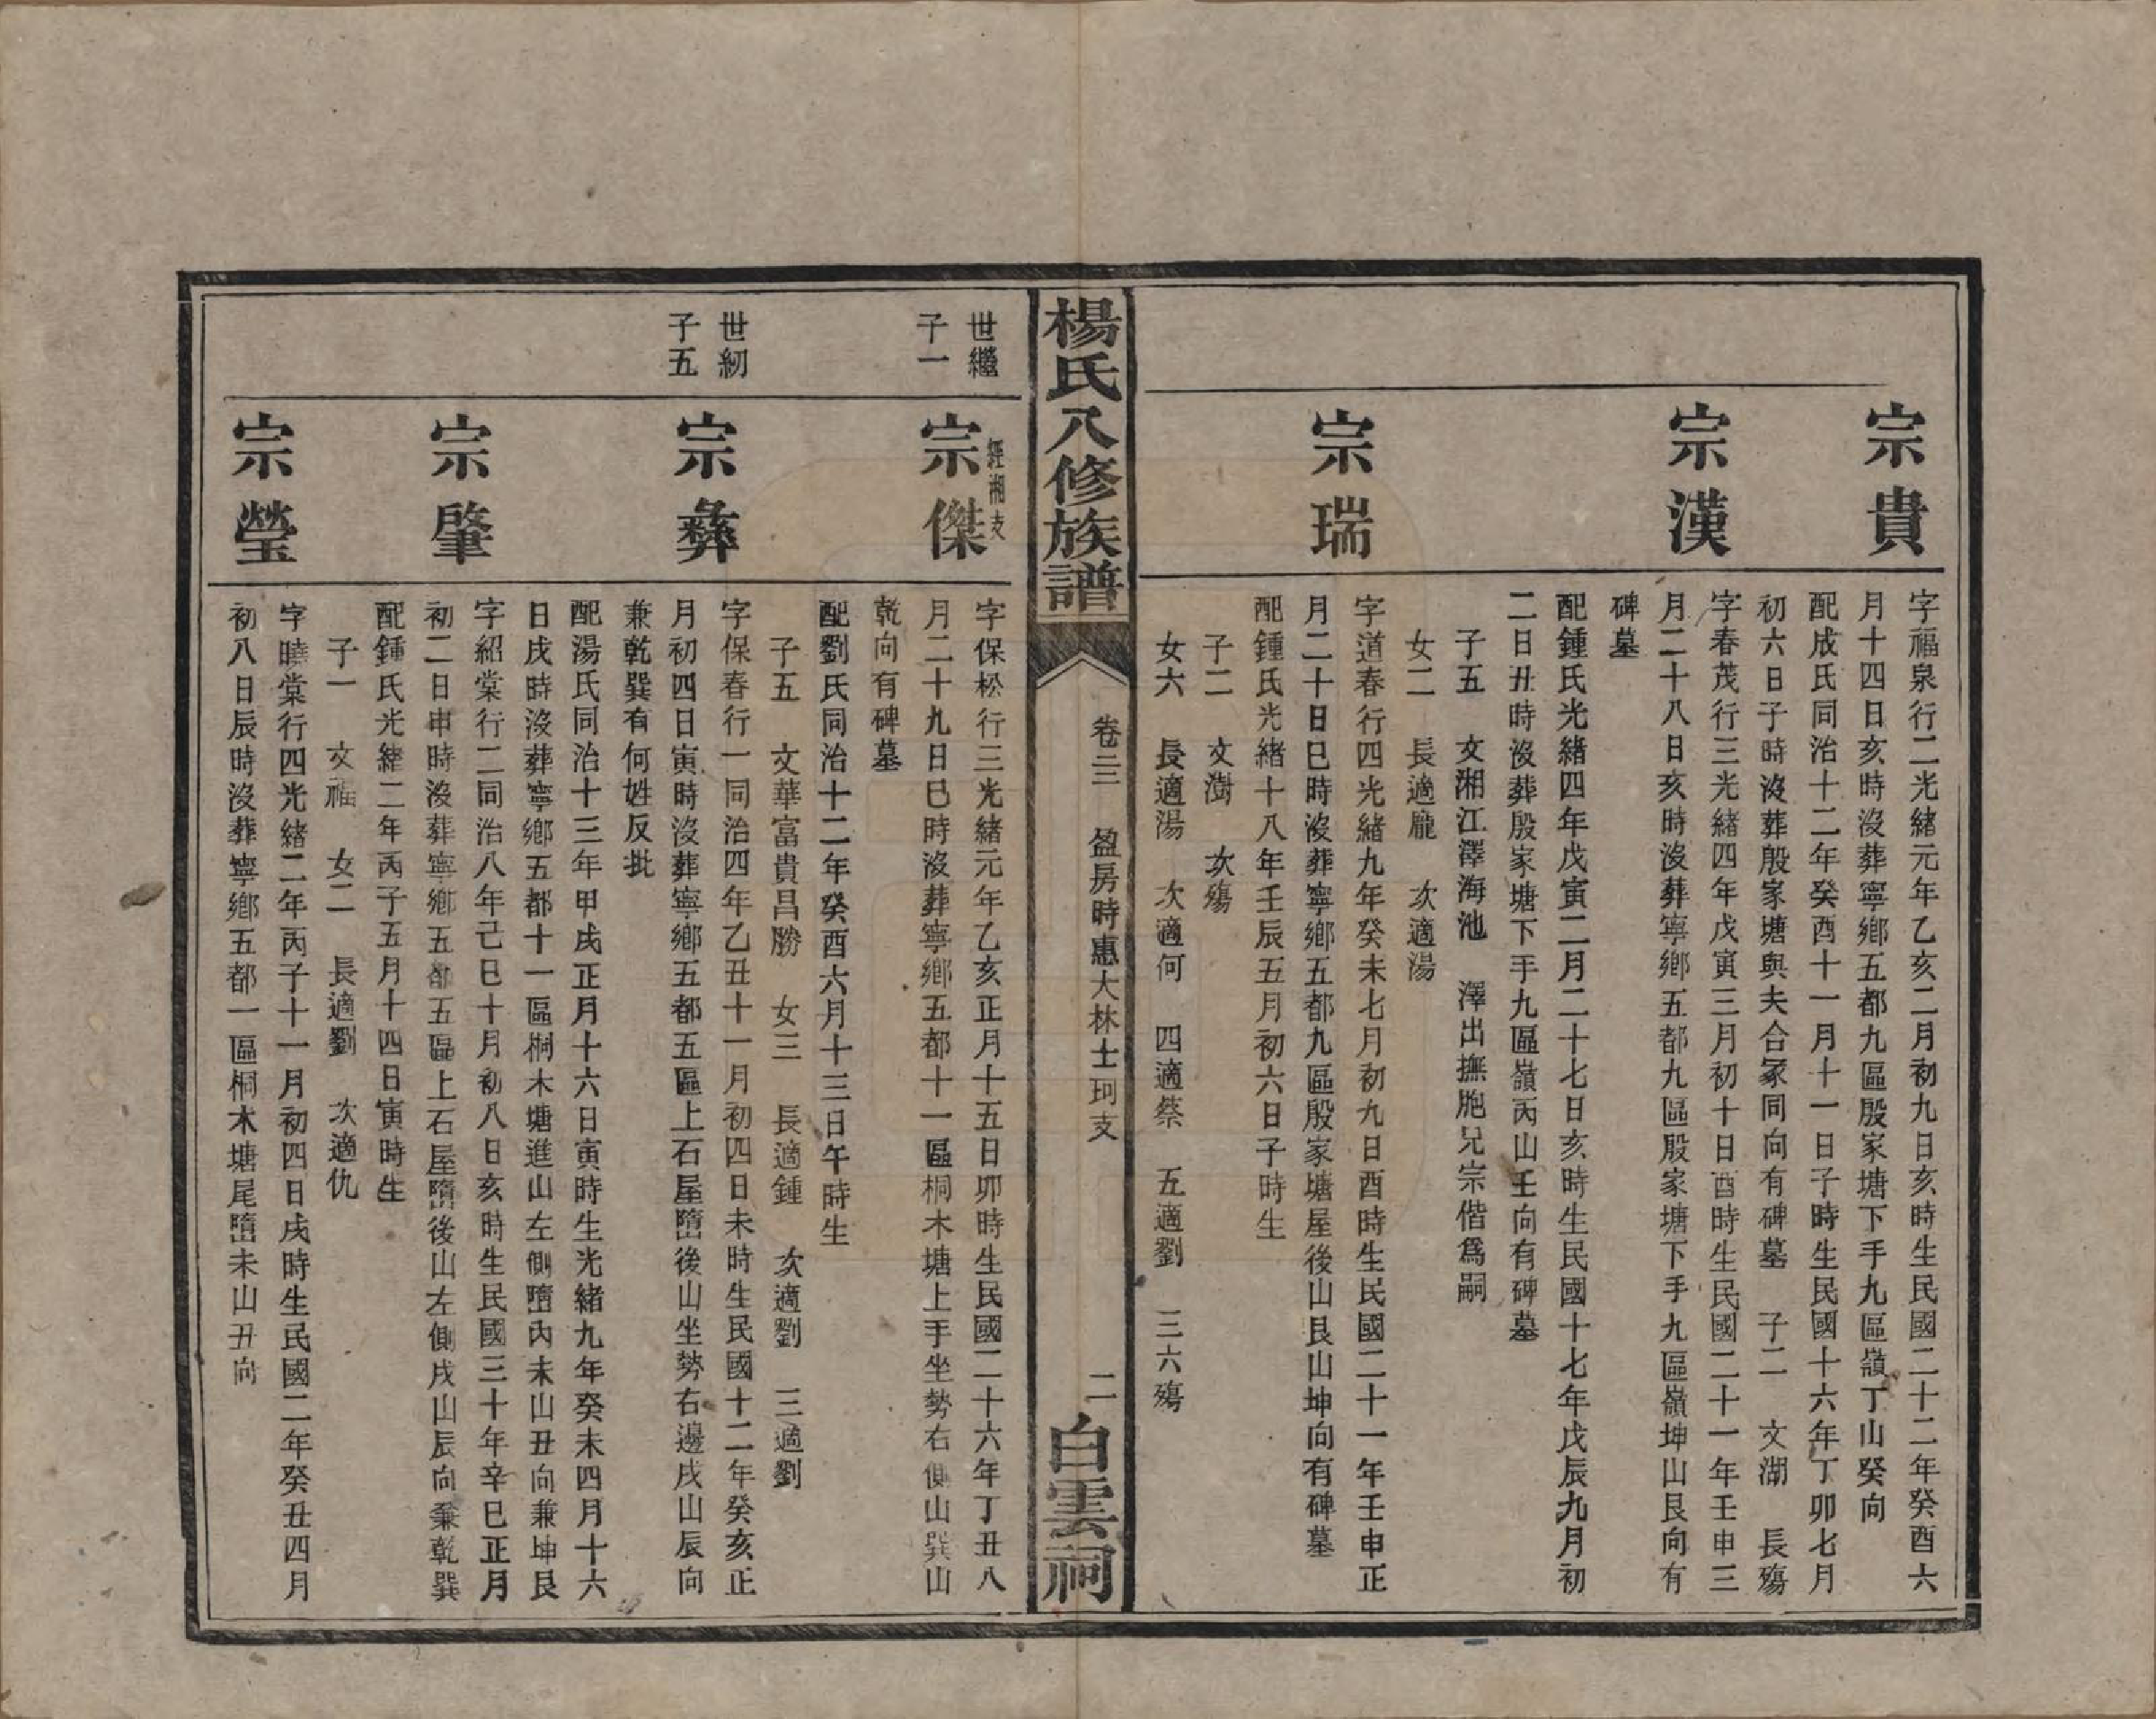 宗貴
字福泉行二光緒元年乙亥二月初九日亥時生民國二十二年癸酉六
月十四日亥時沒葬寧鄉五都九區殷家塘下手九區嶺丁山癸向
配成氏同治十二年癸酉十一月十一日子時生民國十六年丁卯七月
初六日子時沒葬殷家塘與夫合冢同向有碑墓 子二 文湖 長殤
宗漢
字春茂行三光緒四年戊寅三月初十日酉時生民國二十一年壬申三
月二十八日亥時沒葬寧鄉五都九區殷家塘下手九區嶺坤山艮向有
碑墓
配鍾氏光緒四年戊寅二月二十七日亥時生民國十七年戊辰九月初
二日丑時沒葬殷家塘下手九區嶺丙山壬向有碑墓
子五 文湘江澤海池 澤出撫胞兄宗偕爲嗣
女二 長適龐 次適湯
宗瑞
字道春行四光緒九年癸未七月初九日酉時生民國二十一年壬申正
月二十日巳時沒葬寧鄉五都九區殷家塘屋後山艮山坤向有碑墓
配鍾氏光緒十八年壬辰五月初六日子時生
子二 文澍 次殤
女六 長適湯 次適何 四適蔡 五適劉 三六殤
楊氏八修族譜
卷三 盈房時惠大林士珂支
二
白雲祠
世繼
子一
經湘支
宗傑
字保松行三光緒元年乙亥正月十五日卯時生民國二十六年丁丑八
月二十九日巳時沒葬寧鄉五都十一區桐木塘上手坐勢右側山巽山
乾向有碑墓
配劉氏同治十二年癸酉六月十三日午時生
子五 文華富貴昌勝 女三 長適鍾 次適劉 三適劉
世紉
子五
宗彝
字保春行一同治四年乙丑十一月初四日未時生民國十二年癸亥正
月初四日寅時沒葬寧鄉五都五區上石屋䃍後山坐勢右邊戌山辰向
兼乾巽有何姓反批
配湯氏同治十三年甲戌正月十六日寅時生光緒九年癸未四月十六
日戌時沒葬寧鄉五都十一區桐木塘進山左側䃍內未山丑向兼坤艮
宗肇
字紹棠行二同治八年己巳十月初八日亥時生民國三十年辛巳正月
初二日申時沒葬寧鄉五都五區上石屋䃍後山左側戌山辰向兼乾巽
配鍾氏光緒二年丙子五月十四日寅時生
子一 文福 女二 長適劉 次適仇
宗瑩
字曉棠行四光緒二年丙子十一月初四日戌時生民國二年癸丑四月
初八日辰時沒葬寧鄉五都一區桐木塘尾䃍未山丑向